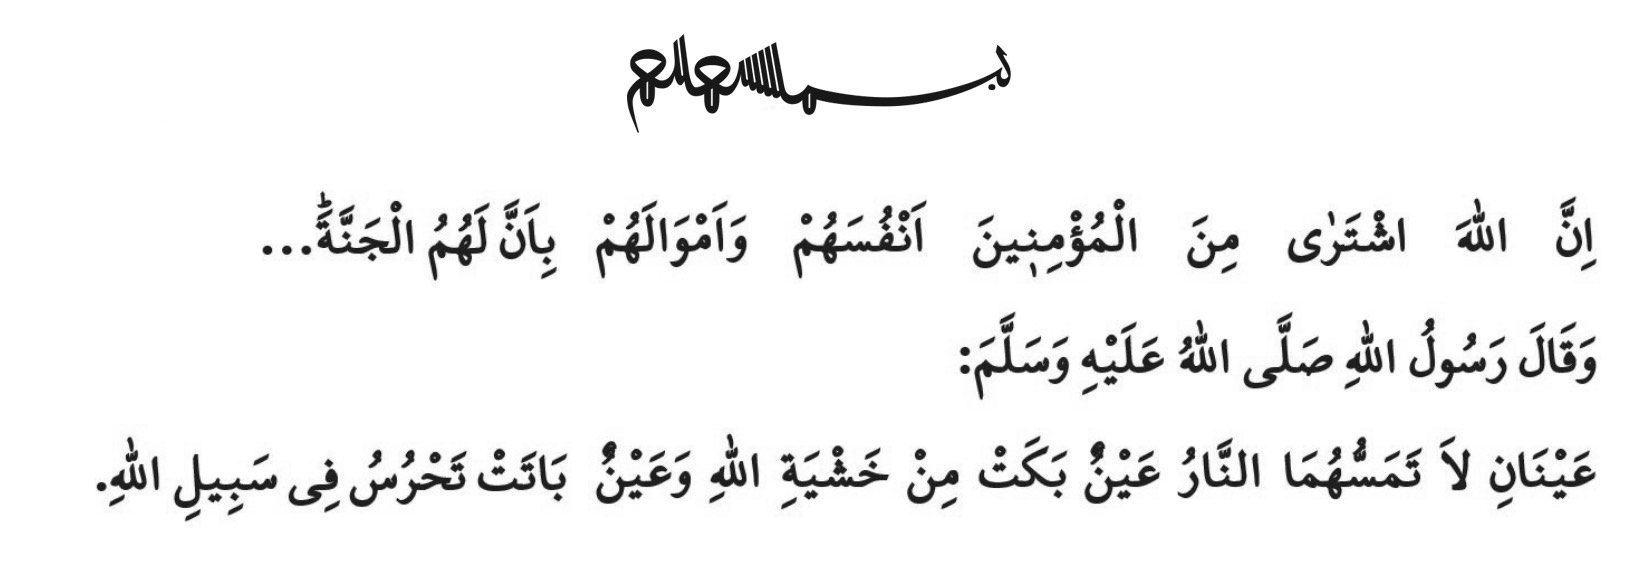 بسم الله الرحمن الرحيم
اِنَّ اللّٰهَ اشْتَرٰى مِنَ الْمُؤْمِنٖينَ اَنْفُسَهُمْ وَاَمْوَالَهُمْ بِاَنَّ لَهُمُ الْجَنَّةَؕ...
وَقَالَ رَسُولُ اللّٰهِ صَلَّى اللّٰهُ عَلَيْهِ وَسَلَّمَ:
عَيْنَانِ لاَ تَمَسُّهُمَا النَّارُ عَيْنٌ بَكَتْ مِنْ خَشْيَةِ اللّٰهِ وَعَيْنٌ بَاتَتْ تَحْرُسُ فِى سَبِيلِ اللّٰهِ.